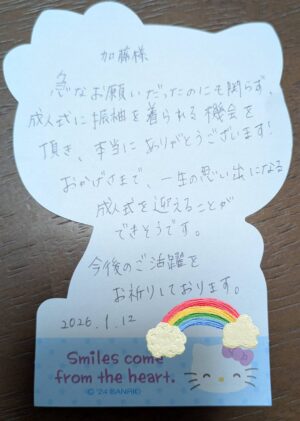 加藤様
急なお願いだったのにも関らず、
成人式に振袖を着られる機会を
頂き、本当にありがとうございます!
おかげさまで、一生の思い出になる
成人式を迎えることが
できそうです。
今後のご活躍を
お祈りしております。
2026.1.12
Smiles come
from the heart.
© '24 SANRIO